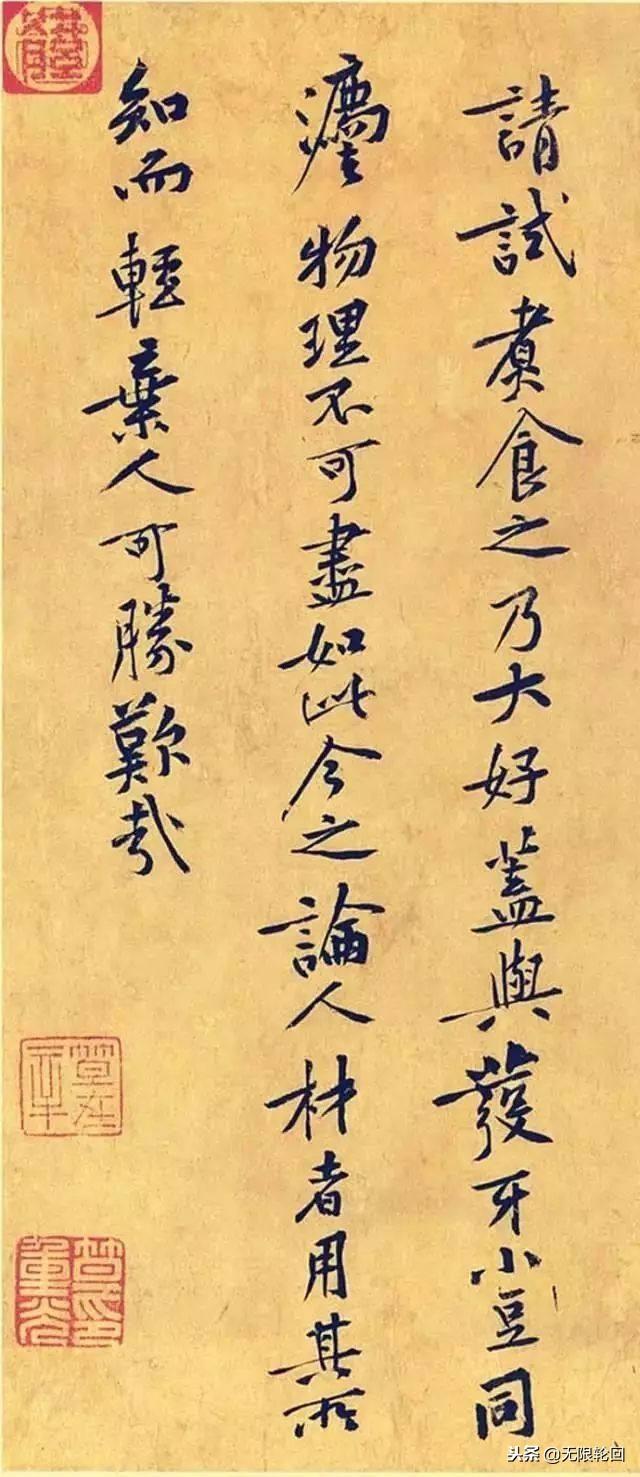 請試煮食之乃大好蓋與發牙小豆同
灋物理不可盡如此今之論人材者用其所
知而輕棄人可勝歎哉
头条 @无限轮回